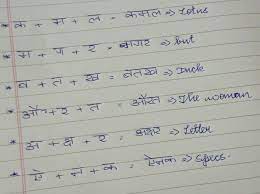 * क + म + ल = कमल ⇒ Lotus
* म + ग + र = मगर ⇒ but
* ब + त + ख = बतख ⇒ Duck
* औ + र + त = औरत ⇒ The woman
* अ + क्ष + र = अक्षर ⇒ Letter
* ऐ + न + क = ऐनक ⇒ Specs.